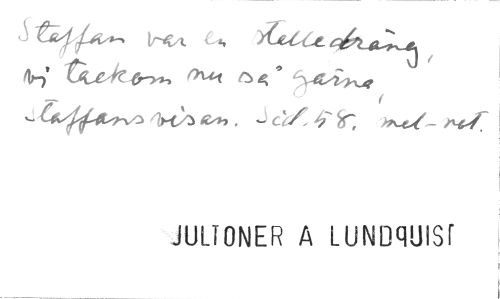 Staffan var en stalledräng,
vi tackom nu så gärna,
Staffansvisan. Sid. 58. mel-not.
JULTONER A LUNDQUIST